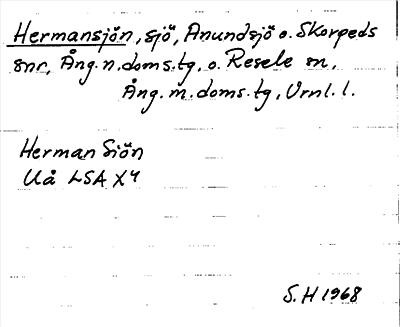 Hermansjön, sjö, Anundsjö o. Skorpeds
snr, Ång. n. doms. tg, o. Resele sn,
Ång. m. doms. tg, Vrnl. l.
Herman Siön
Uå LSA X4
S. H 1968